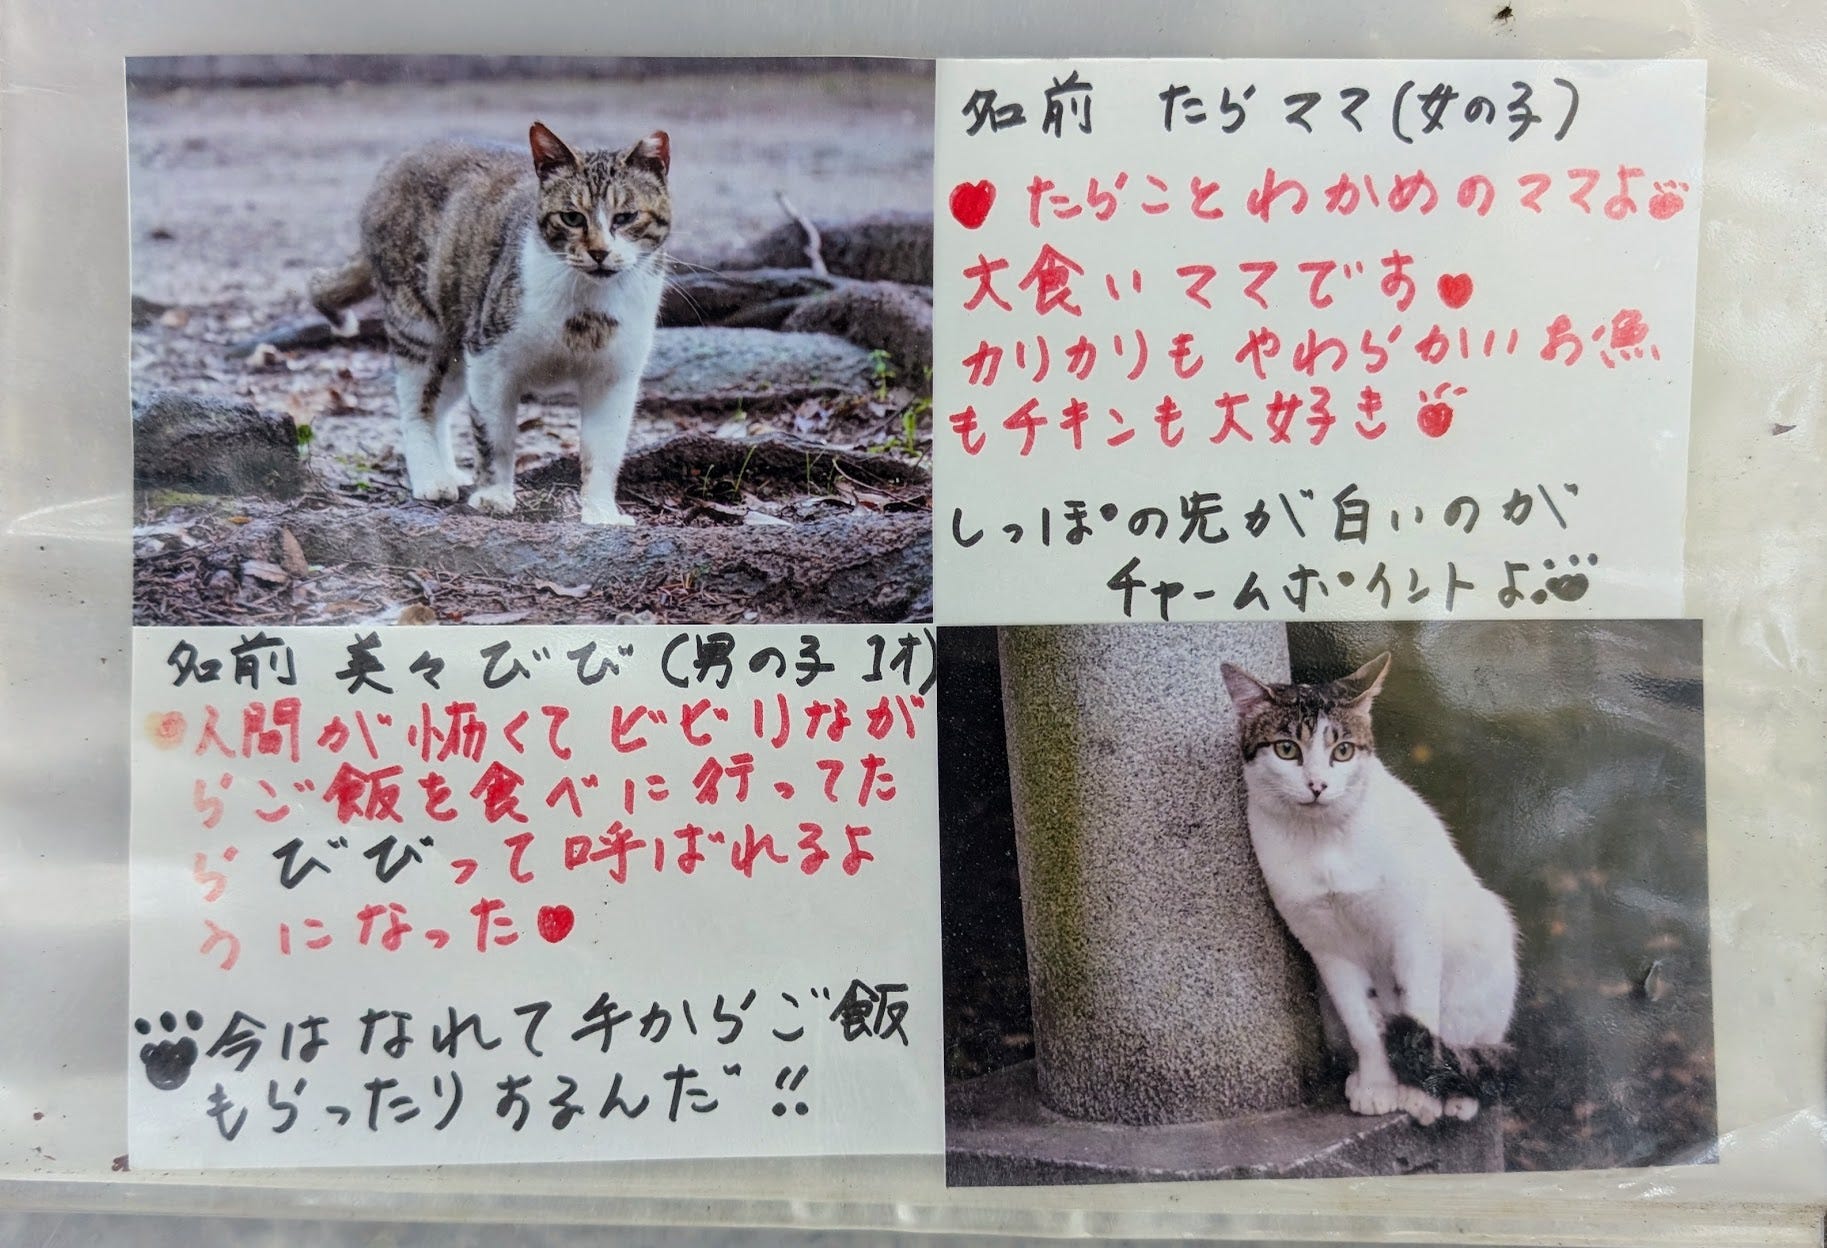 名前 たらママ(女の子)
♥たらことわかめのママよ
大食いママです♥
カリカリもやわらかいお魚
もチキンも大好き
しっぽの先が白いのが
チャームポイントよ
名前 美々びび(男の子 1才)
♥人間が怖くてビビリなが
らご飯を食べに行ってた
らびびって呼ばれるよ
うになった♥
今はなれて手からご飯
もらったりするんだ!!